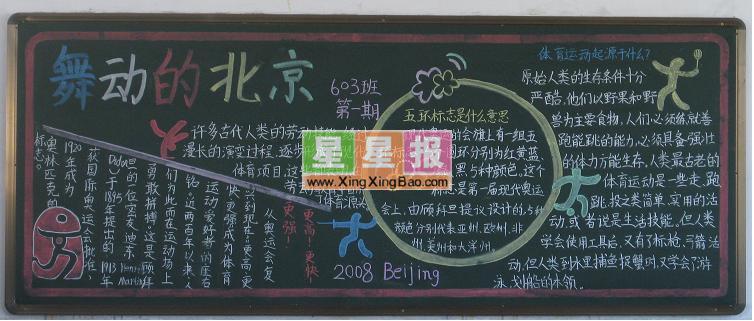 舞动的北京
603班
第一期
许多古代人类的劳
漫长的演变过程,逐步
体育项目,这
更高!更快!
更强!
从奥运会复
2008 Beijing
五环标志是什么意思
的会旗上有一组五
圆环分别为红黄蓝
黑与种颜色,这个
标志是第一届现代奥运
会上,由顾拜旦提议设计的,5种
颜色分别代表亚州、欧州、非
州、美州和大洋州。
体育运动起源于什么?
原始人类的生存条件十分
严酷,他们以野果和野
兽为主要食物,人们必须练就善
跑能跳的能力,必须具备强壮
的体力方能生存,人类最古老的
体育运动是一些走、跑
跳、投之类简单、实用的活
动,或者说是生活技能。但人类
学会使用工具后,又有了标枪、弓箭活
动,但人类到水里捕鱼捉蟹时,又学会了游
泳、划船的本领。
运动爱好者的座右
铭。近两百年以来,人
们为此而在运动场上
勇敢拼搏。这是顾拜
旦的一位至友迪东
(Didon)于1895年提出的,1913年
获国际奥运会批准,
1920年成为
奥林匹克的
标志。
星星报
www.XingXingBao.com